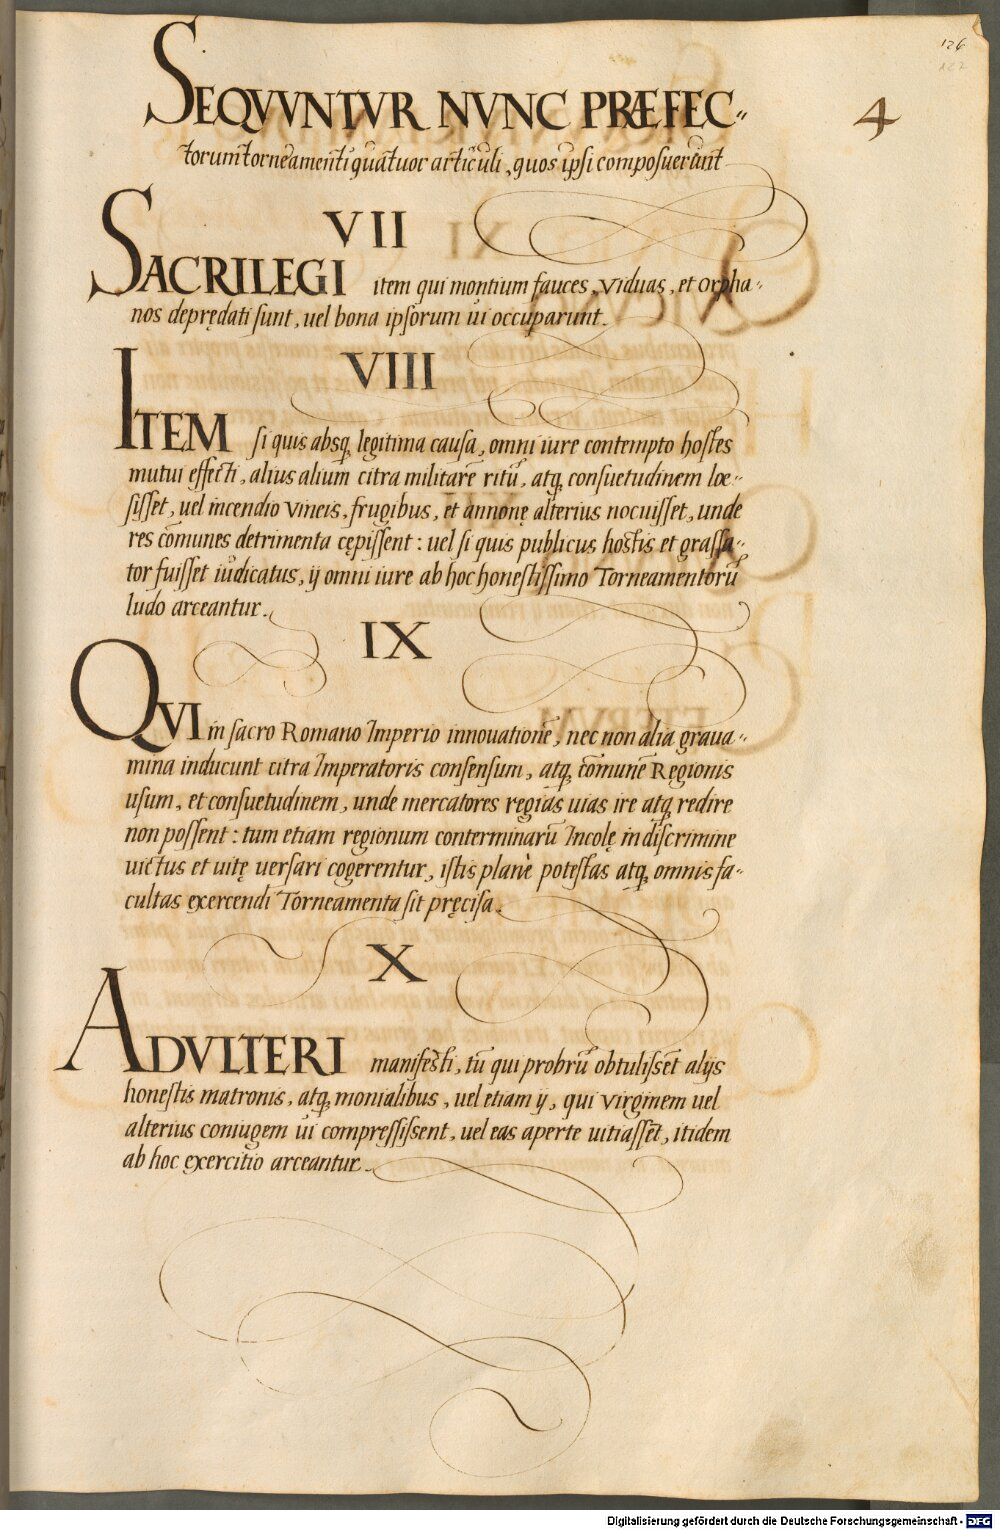 126
127
4
SEQVVNTVR NVNC PRÆFEC-
torum torneamenti quatuor articuli, quos ipsi composuerunt
VII
SACRILEGI item qui montium fauces, viduas, et orpha-
nos deprędati sunt, uel bona ipsorum ui occuparunt.
VIII
ITEM si quis absq legitima causa, omni iure contempto hostes
mutui effecti, alius alium citra militarē ritū, atq consuetudinem loe-
sisset, uel incendio vineis, frugibus, et annonę alterius nocuisset, unde
res cōmunes detrimenta cępissent: uel si quis publicus hostis et grassa-
tor fuisset iudicatus, ij omni iure ab hoc honestissimo Torneamentorū
ludo arceantur.
IX
QVI in sacro Romano Imperio innouationē, nec non alia graua-
mina inducunt citra Imperatoris consensum, atq cōmunē Regionis
usum, et consuetudinem, unde mercatores regias uias ire atq redire
non possent: tum etiam regionum conterminarū Incolę in discrimine
uictus et uitę uersari cogerentur, istis planè potestas atq omnis fa-
cultas exercendi Torneamenta sit pręcisa.
X
ADVLTERI manifesti, tū qui probrū obtulissēt alijs
honestis matronis, atq monialibus, uel etiam ij, qui virginem uel
alterius coniugem ui compressissent, uel eas aperte uitiassēt, itidem
ab hoc exercitio arceantur.
Digitalisierung gefördert durch die Deutsche Forschungsgemeinschaft - DFG